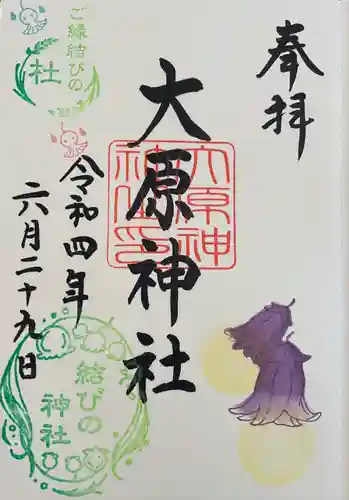 奉拝
大原神社
大原神
神社印
令和四年
六月二十九日
ご縁結びの
社
結びの
神社